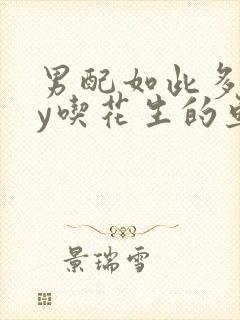 男配如此多
y吃花生的
景瑞雪